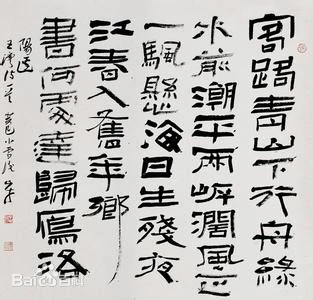 客路青山下行舟綠
水前潮平兩岸闊風正
一颿懸海日生殘夜
江春入舊年鄉
書何處達歸鴈洛
陽邊
王灣诗
癸巳小雪
Baidu百科